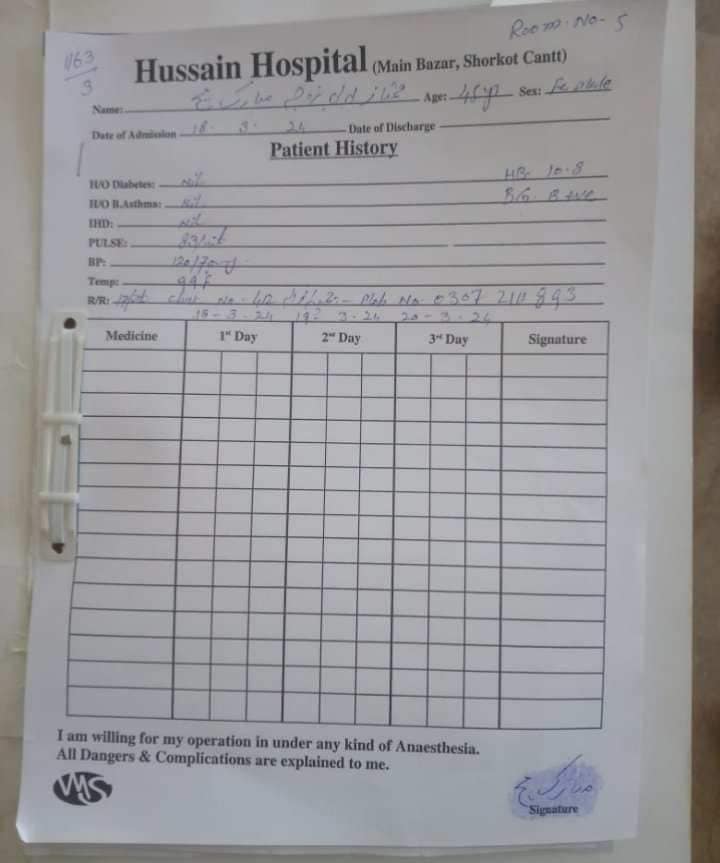 Room. No- 5
1163
3
Hussain Hospital (Main Bazar, Shorkot Cantt)
Name: ممتاز Age: 45y Sex: Female
Date of Admission 18. 3. 24 Date of Discharge
Patient History
H/O Diabetes: Nil HB 10.8
H/O B.Asthma: Nil B/G. B +ve
IHD: Nil
PULSE: 83/
BP: 120/70
Temp: 99 F
R/R: No. Mob No 0307 2111893
18-3-24 19- 3-24 20-3-24
Medicine 1st Day 2nd Day 3rd Day Signature
I am willing for my operation in under any kind of Anaesthesia.
All Dangers & Complications are explained to me.
VMS
Signature